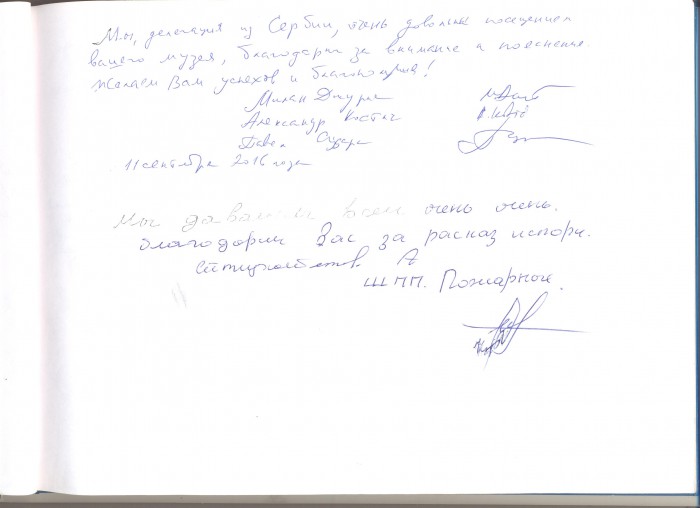 Мы, делегация из Сербии, очень довольны посещением
вашего музея, благодарим за внимание и пояснение.
Желаем Вам успехов и благополучия!
Милан
Александр Костич
Павел
11 сентября 2016 года
Мы давольни всем очень очень.
Благодорим Вас за расказ истори.
А
ШПП. Пожарные.